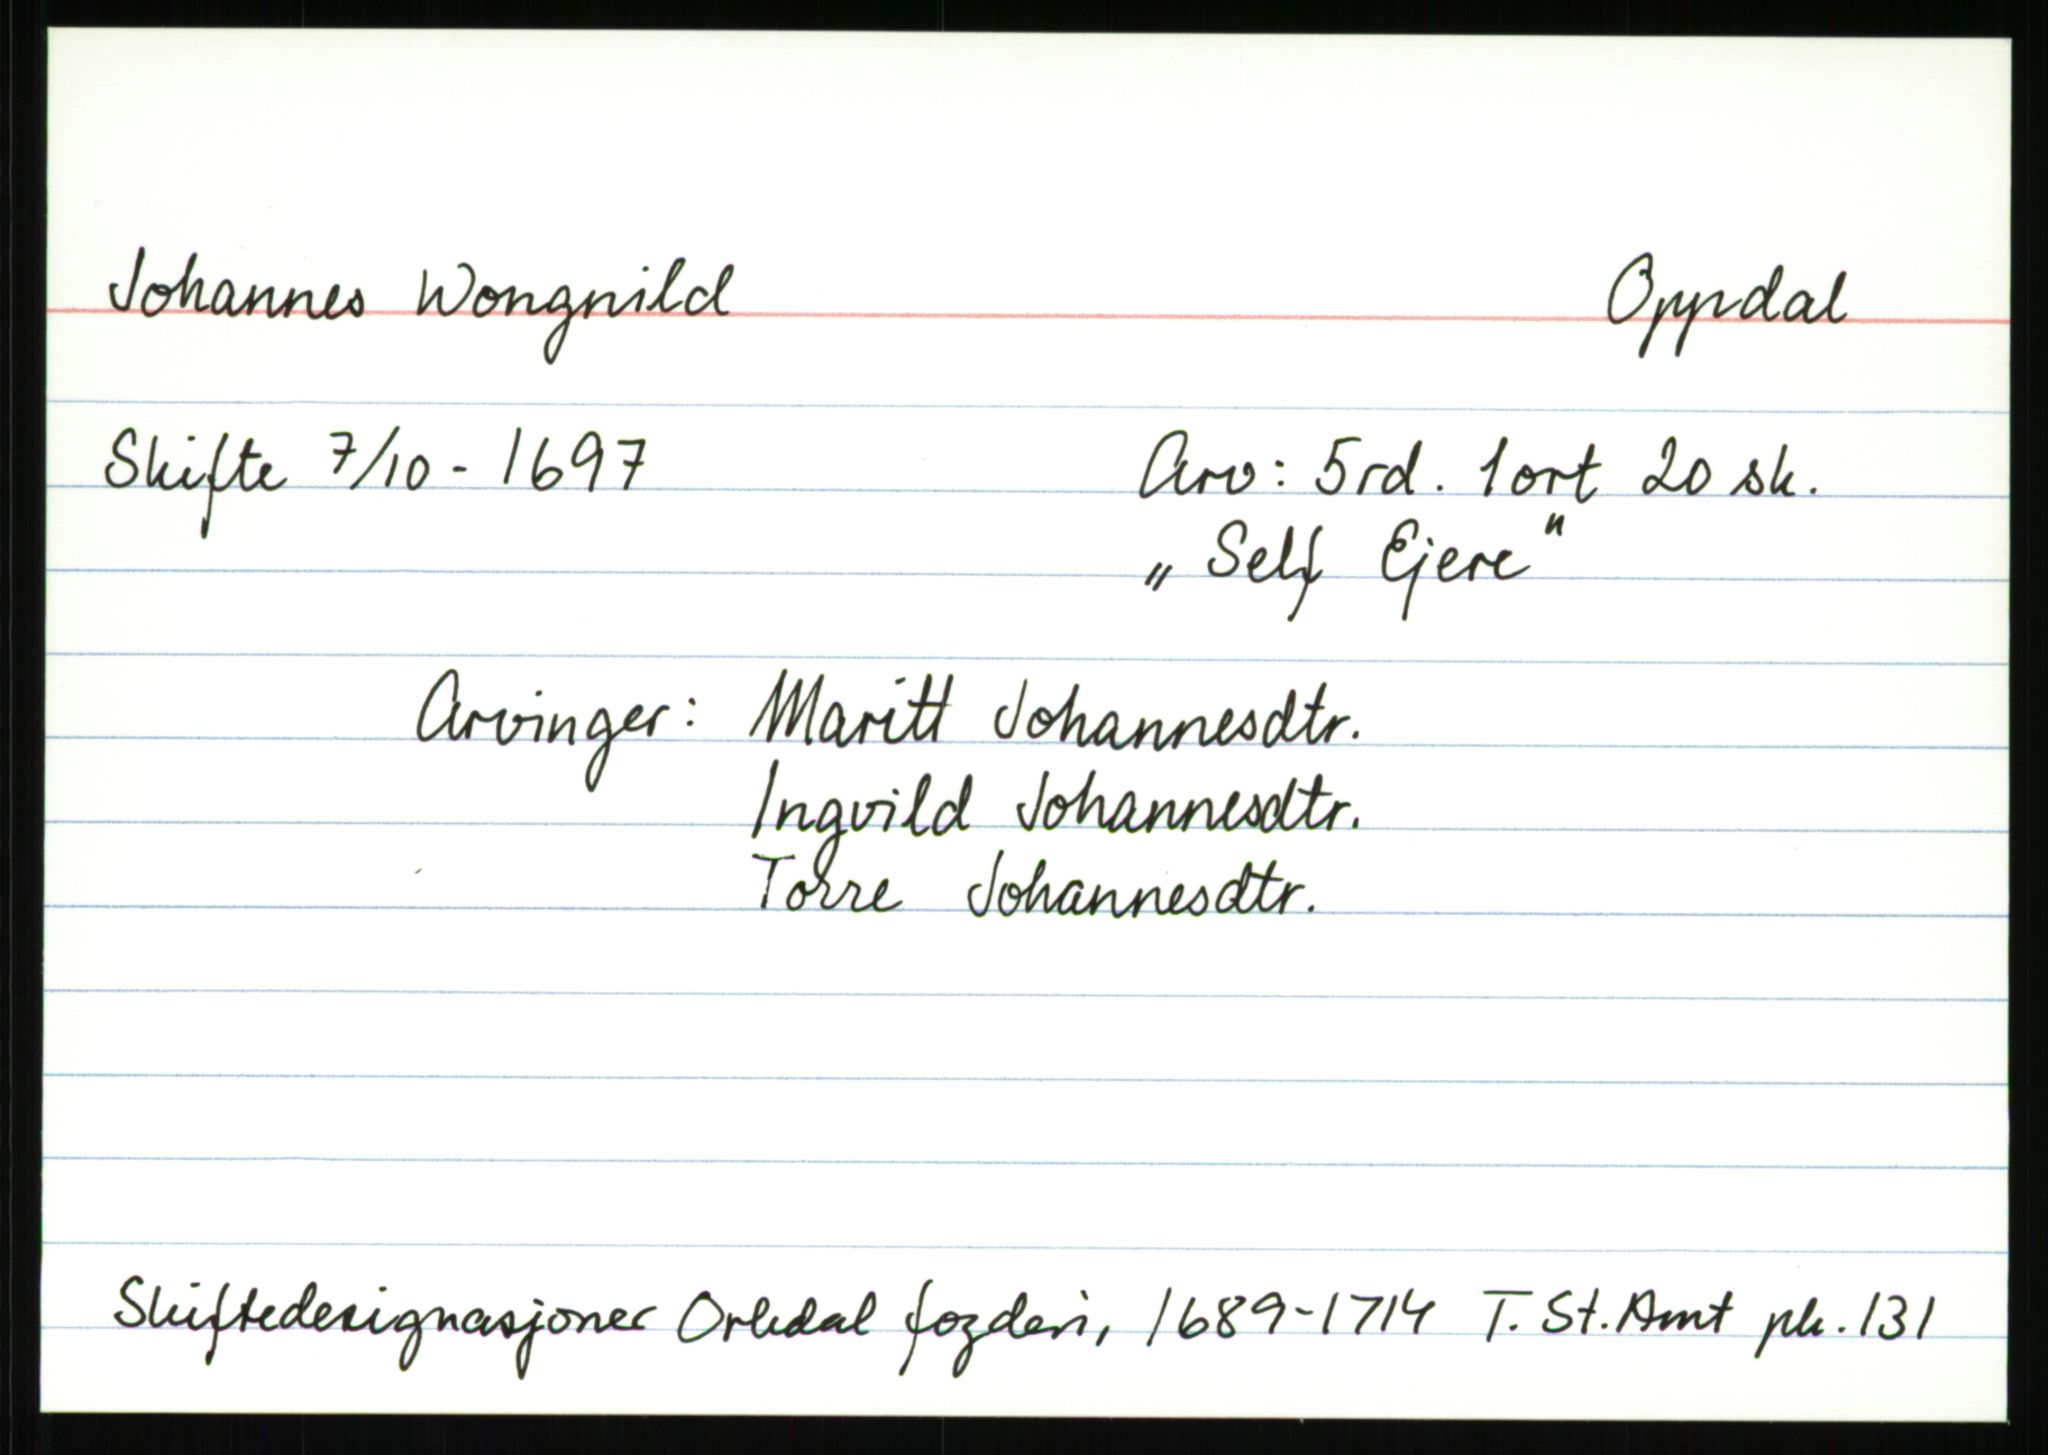 Johannes Wongnild Oppdal
Skifte 7/10 - 1697 Arv: 5 rd. 1 ort 20 sk.
„Self Ejere"
Arvinger: Maritt Johannesdtr.
Ingvild Johannesdtr.
Torre Johannesdtr.
Skiftedesignasjoner Orkdal fogderi, 1689-1714 T. St. Amt pk. 131